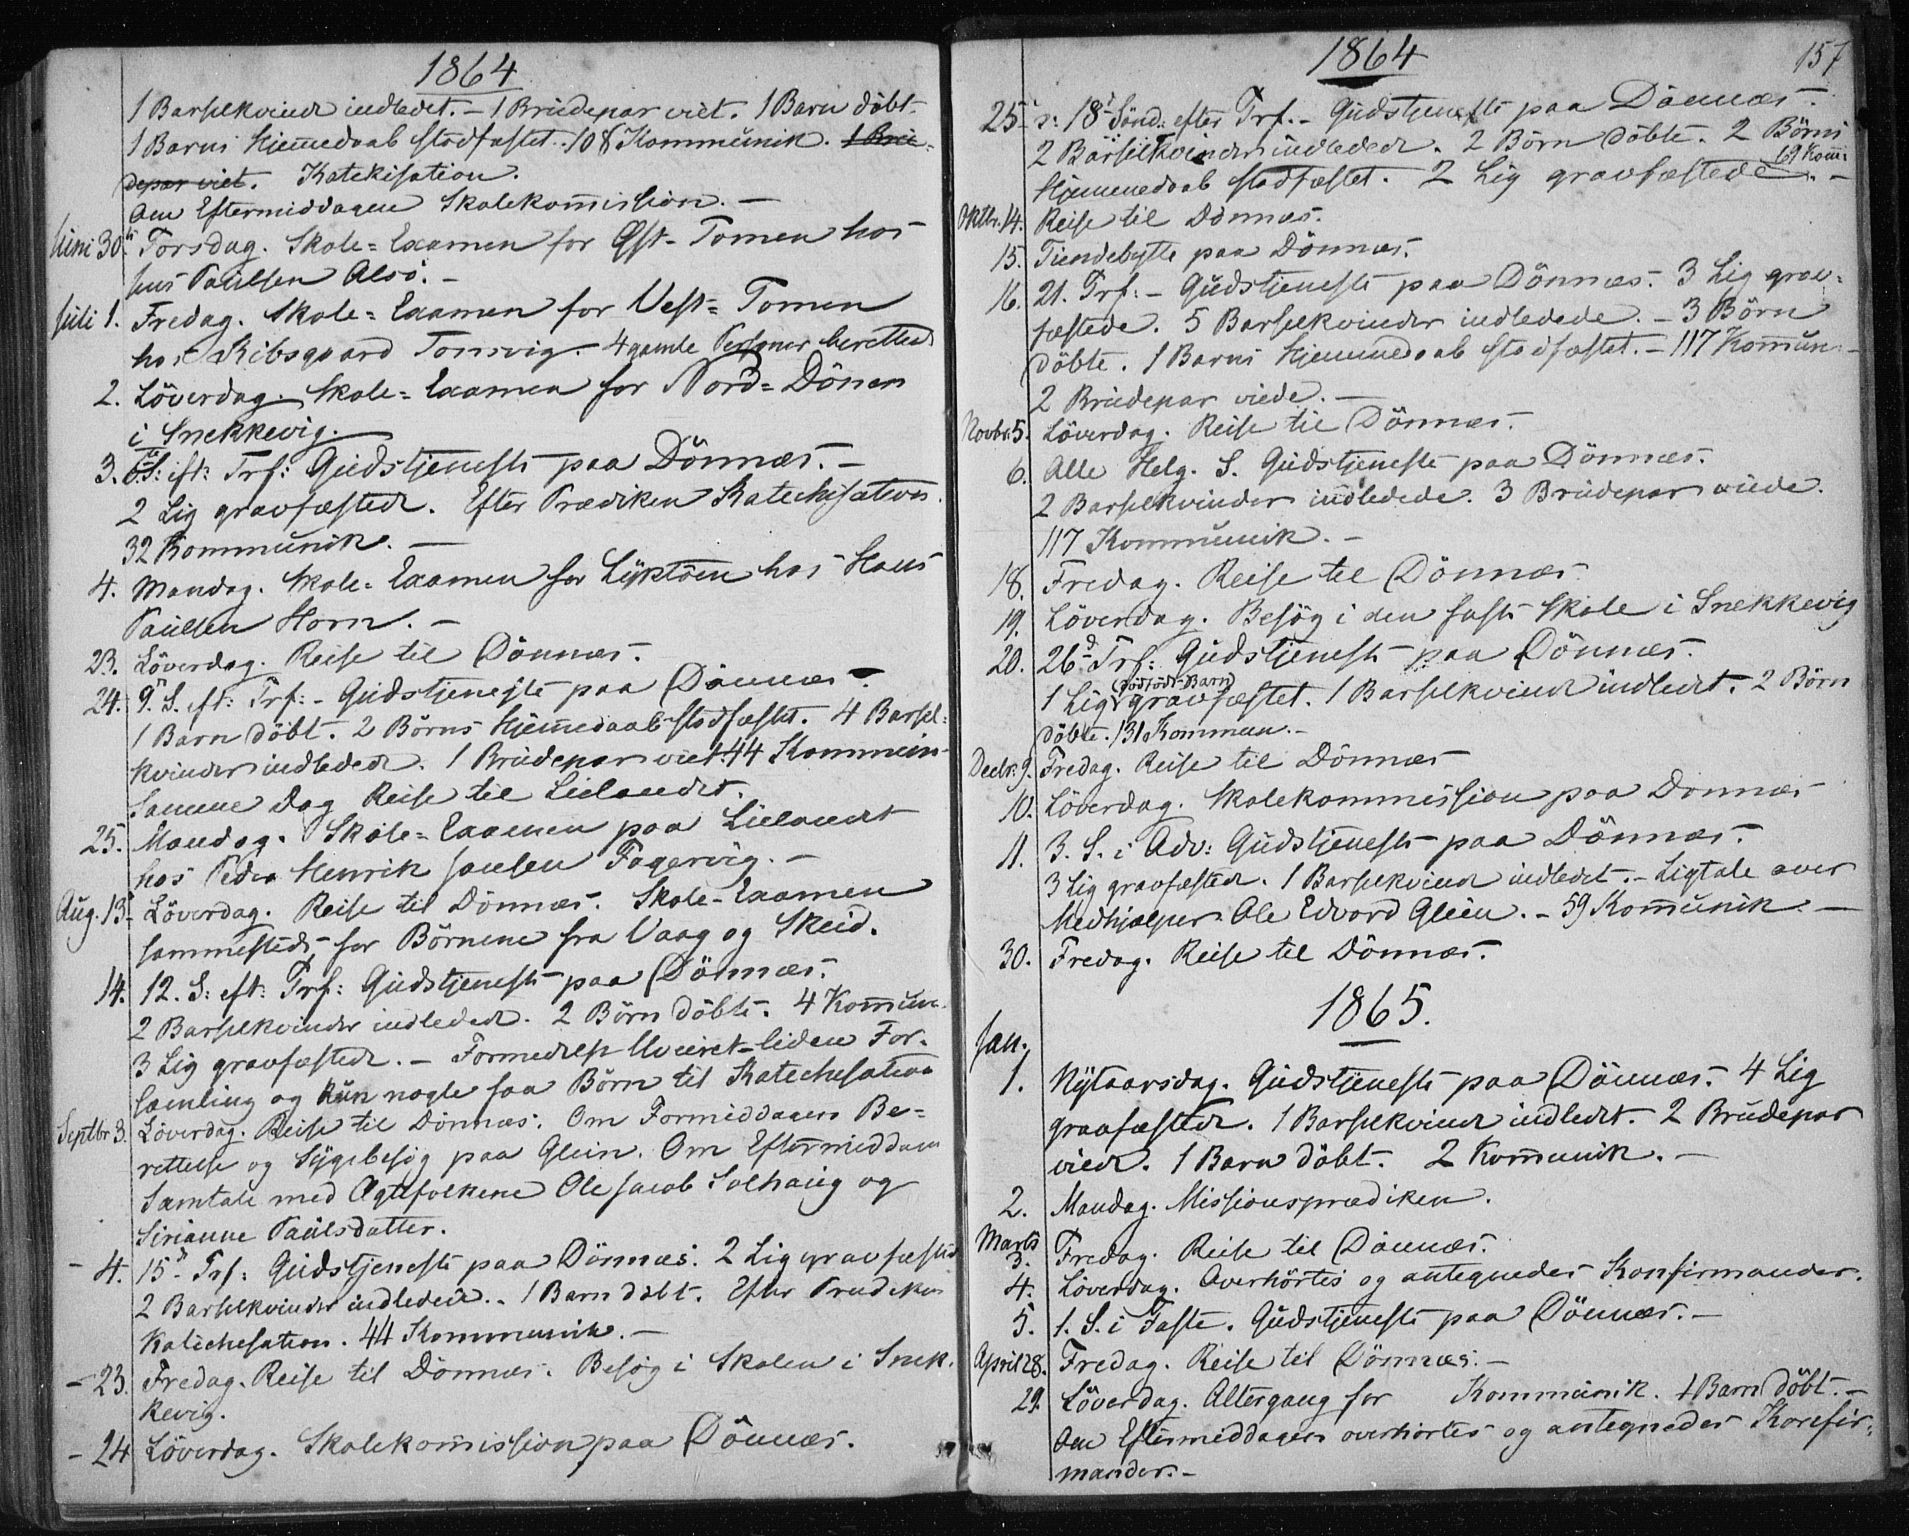 1864
1 Barselkvinde indledet. – 1 Brudepar viet. 1 Barn döbt
1 Barns Hjemedaab stadfæstet. 108 Kommunik. 1 Bru-
depar viet. Katekisation.
Om Eftermiddagen Skolekomission. –
Juni 30. Torsdag. Skole=Examen for Öst-Tomen hos
Jens Paulsen Alsö. –
Juli 1. Fredag. Skole=Examen for Vest=Tomen
hos Ribsgaard Tomvig. 4 gamle Personer berettede
2. Löverdag. Skole=Examen for Nord=Dönen
i Snekkevig.
3. 6 S. eft: Trf: Gudstjeneste paa Dönnæs. –
2 Lig gravfæstede. Efter Prædiken Katechisation.
32 Kommunik. –
4. Mandag. Skole=Examen for Lyktöen hos Hans
Paulsen Horn. –
23. Löverdag. Reise til Dönnæs.
24. 9d S. eft: Trf: – Gudstjeneste paa Dönnæs –
1 Barn döbt. 2 Börns Hjemedaab stadfæstet. 4 Barsel=
kvinder indledede. 1 Brudepar viet. 44 Kommun-
Samme Dag Reise til Lielandet.
25. Mandag. Skole=Examen paa Lielandet
hos Peder Henrik Jensen Fagervig. –
Aug. 13. Löverdag. Reise til Dönnæs. Skole-Examen
sammesteds for Börnene fra Vaag og Skeid.
14. 12. S: eft: Trf: Gudstjeneste paa Dönnæs.
2 Barselkvinder indledede. 2 Börn döbte. 4 Kommun.
3 Lig gravfæstede. – Formedelst Uveiret liden For-
samling og kun nogle faa Börn til Katechesation
Septbr 3. Löverdag. Reise til Dönnæs. Om Formiddagen Be=
rettelse og Sygebesög paa Glein. Om Eftermiddagen
Samtale med Ægtefolkene Ole Jacob Solhaug og
Sirianne Paulsdatter.
– 4. 15d Trf: Gudstjeneste paa Dönnæs. 2 Lig gravfæstede
2 Barselkvinder indledede. – 1 Barn döbt. Efter Prædiken
Katichesation. 44 Kommunik. –
– 23. Fredag. Reise til Dönnæs. Besög i Skolen i Snek-
kevig.
– 24 Löverdag. Skolekomission paa Dönnæs.
1864
157
25. 18d Sönd: efter Trf. – Gudstjeneste paa Dönnæs.
2 Barselkvinder indledede. 2 Börn döbte. 2 Börns
Hjemmedaab stadfæstet. 2 Lig gravfæstede. – 69 Kom:
Oktbr. 14. Reise til Dönnæs.
15. Tiendebytte paa Dönnæs.
16. 21. Trf: – Gudstjeneste paa Dönnæs. 3 Lig grav-
fæstede. 5 Barselkvinder indledede. – 3 Börn
döbte. 1 Barns Hjemmedaab stadfæstet. – 117 Kommun: –
2 Brudepar viede. –
Novbr. 5. Löverdag. Reise til Dönnæs.
6. Alle Helg. S. Gudstjeneste paa Dönnæs.
2 Barselkvinder indledede. 3 Brudepar viede.
117 Kommunik. –
18. Fredag. Reise til Dönnæs.
19. Löverdag. Besög i den faste Skole i Snekkevig
20. 26d Trf: Gudstjeneste paa Dönnæs.
1 Lig (dödfödt Barn) gravfæstet. 1 Barselkvinde indledet. 2 Börn
döbte. 131 Kommun. –
Decbr. 9. Fredag. Reise til Dönnæs
10. Löverdag. Skolekommission paa Dönnæs
11. 3. S. i Adv: Gudstjeneste paa Dönnæs.
3 Lig gravfæstede. 1 Barselkvinde indledet. – Ligtale over
Medhjælper Ole Edvard Glein. – 59 Kommunik. –
30. Fredag. Reise til Dönnæs.
1865.
Jan.
1. Nytaarsdag. Gudstjeneste paa Dönnæs. 4 Lig
gravfæstede. 1 Barselkvinde indledet. 2 Brudepar
viede. 1 Barn döbt. 2 Kommunik. –
2. Mandag. Missionsprædiken.
Marts
3. Fredag. Reise til Dönnæs.
4. Löverdag. Overhörtes og antegnedes Konfirmander.
5. 1. S. i Faste. Gudstjeneste paa Dönnæs. –
April 28. Fredag. Reise til Dönnæs. –
29. Löverdag. Altergang for Kommunik. 1 Barn döbt. –
Om Eftermiddagen overhörtes og antegnedes Konfir:
mander. –